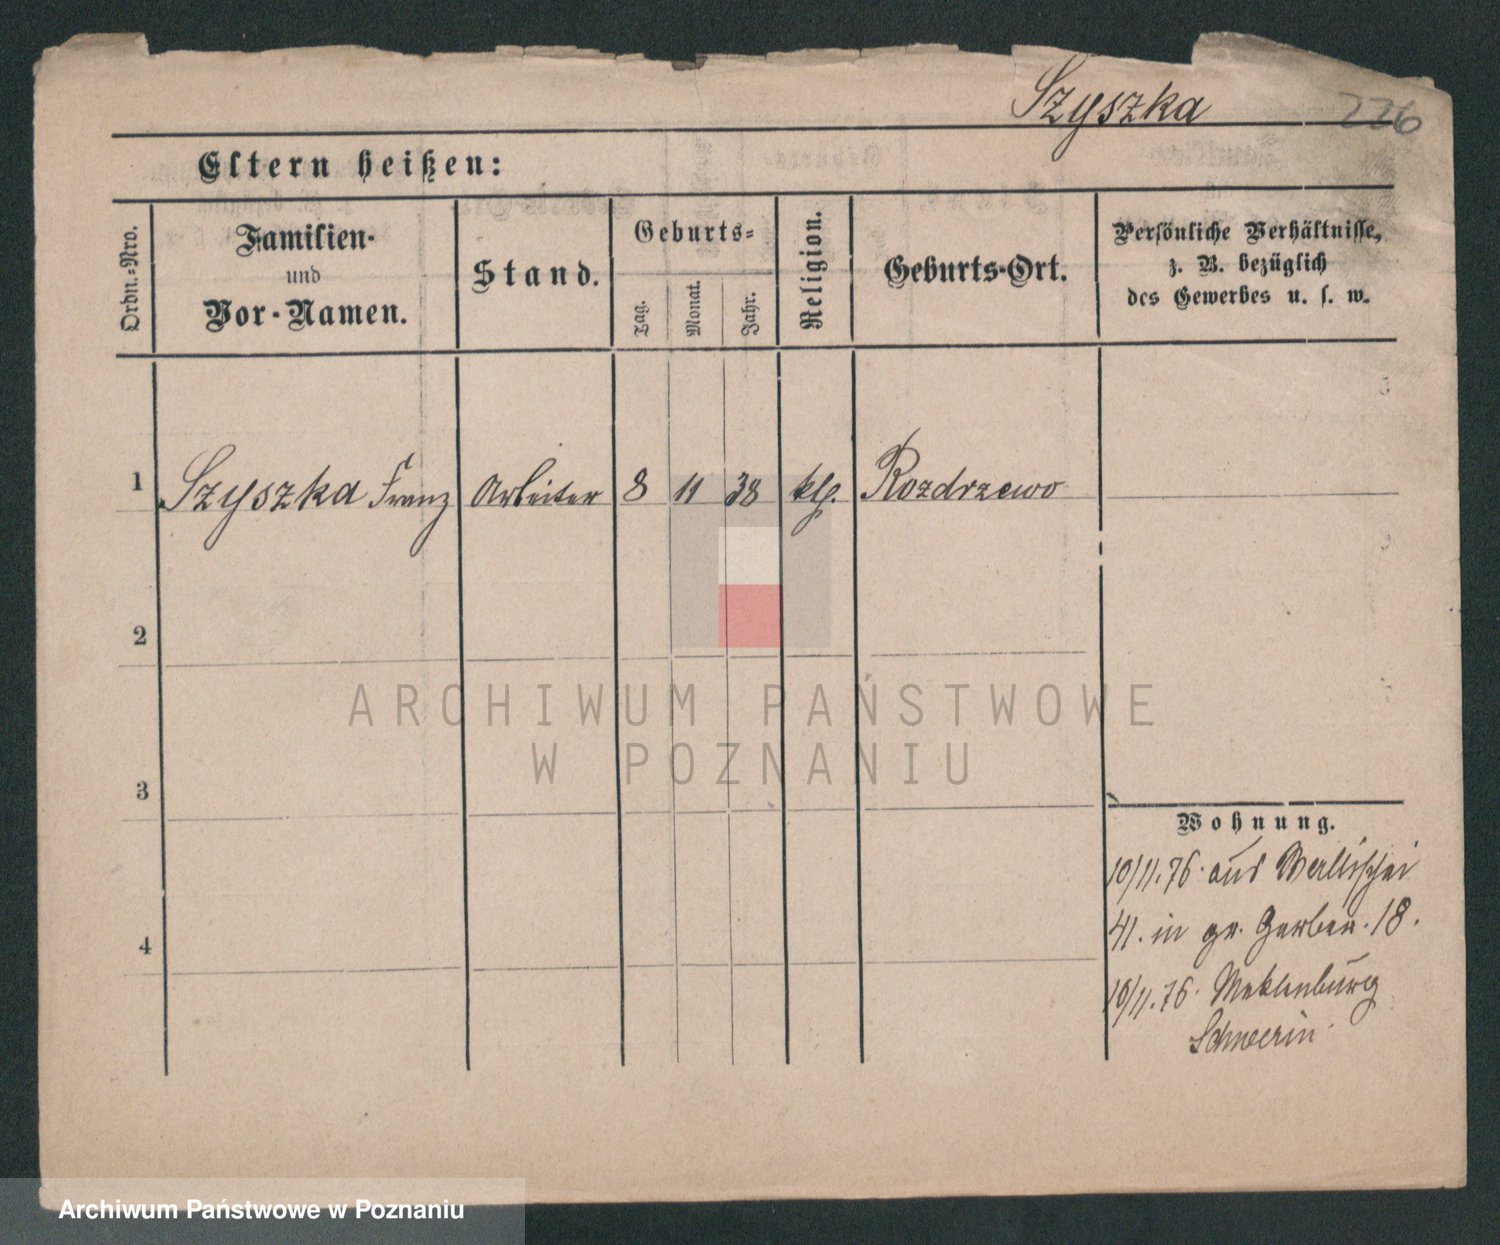 Szyszka
226
Eltern heißen:
Ordn.-Nro.
Familien-
und
Vor-Namen.
Stand.
Geburts-
Tag.
Monat.
Jahr.
Religion.
Geburts-Ort.
Persönliche Verhältnisse,
z. B. bezüglich
des Gewerbes u. s. w.
1 Szyszka Franz Arbeiter 8 11 38 kth. Rozdrzewo
2
3
4
Wohnung.
10/11.76. aus Wallischei
41. in gr. Gerber. 18.
18/11.76. Meklenburg
Schwerin
ARCHIWUM PAŃSTWOWE
W POZNANIU
Archiwum Państwowe w Poznaniu